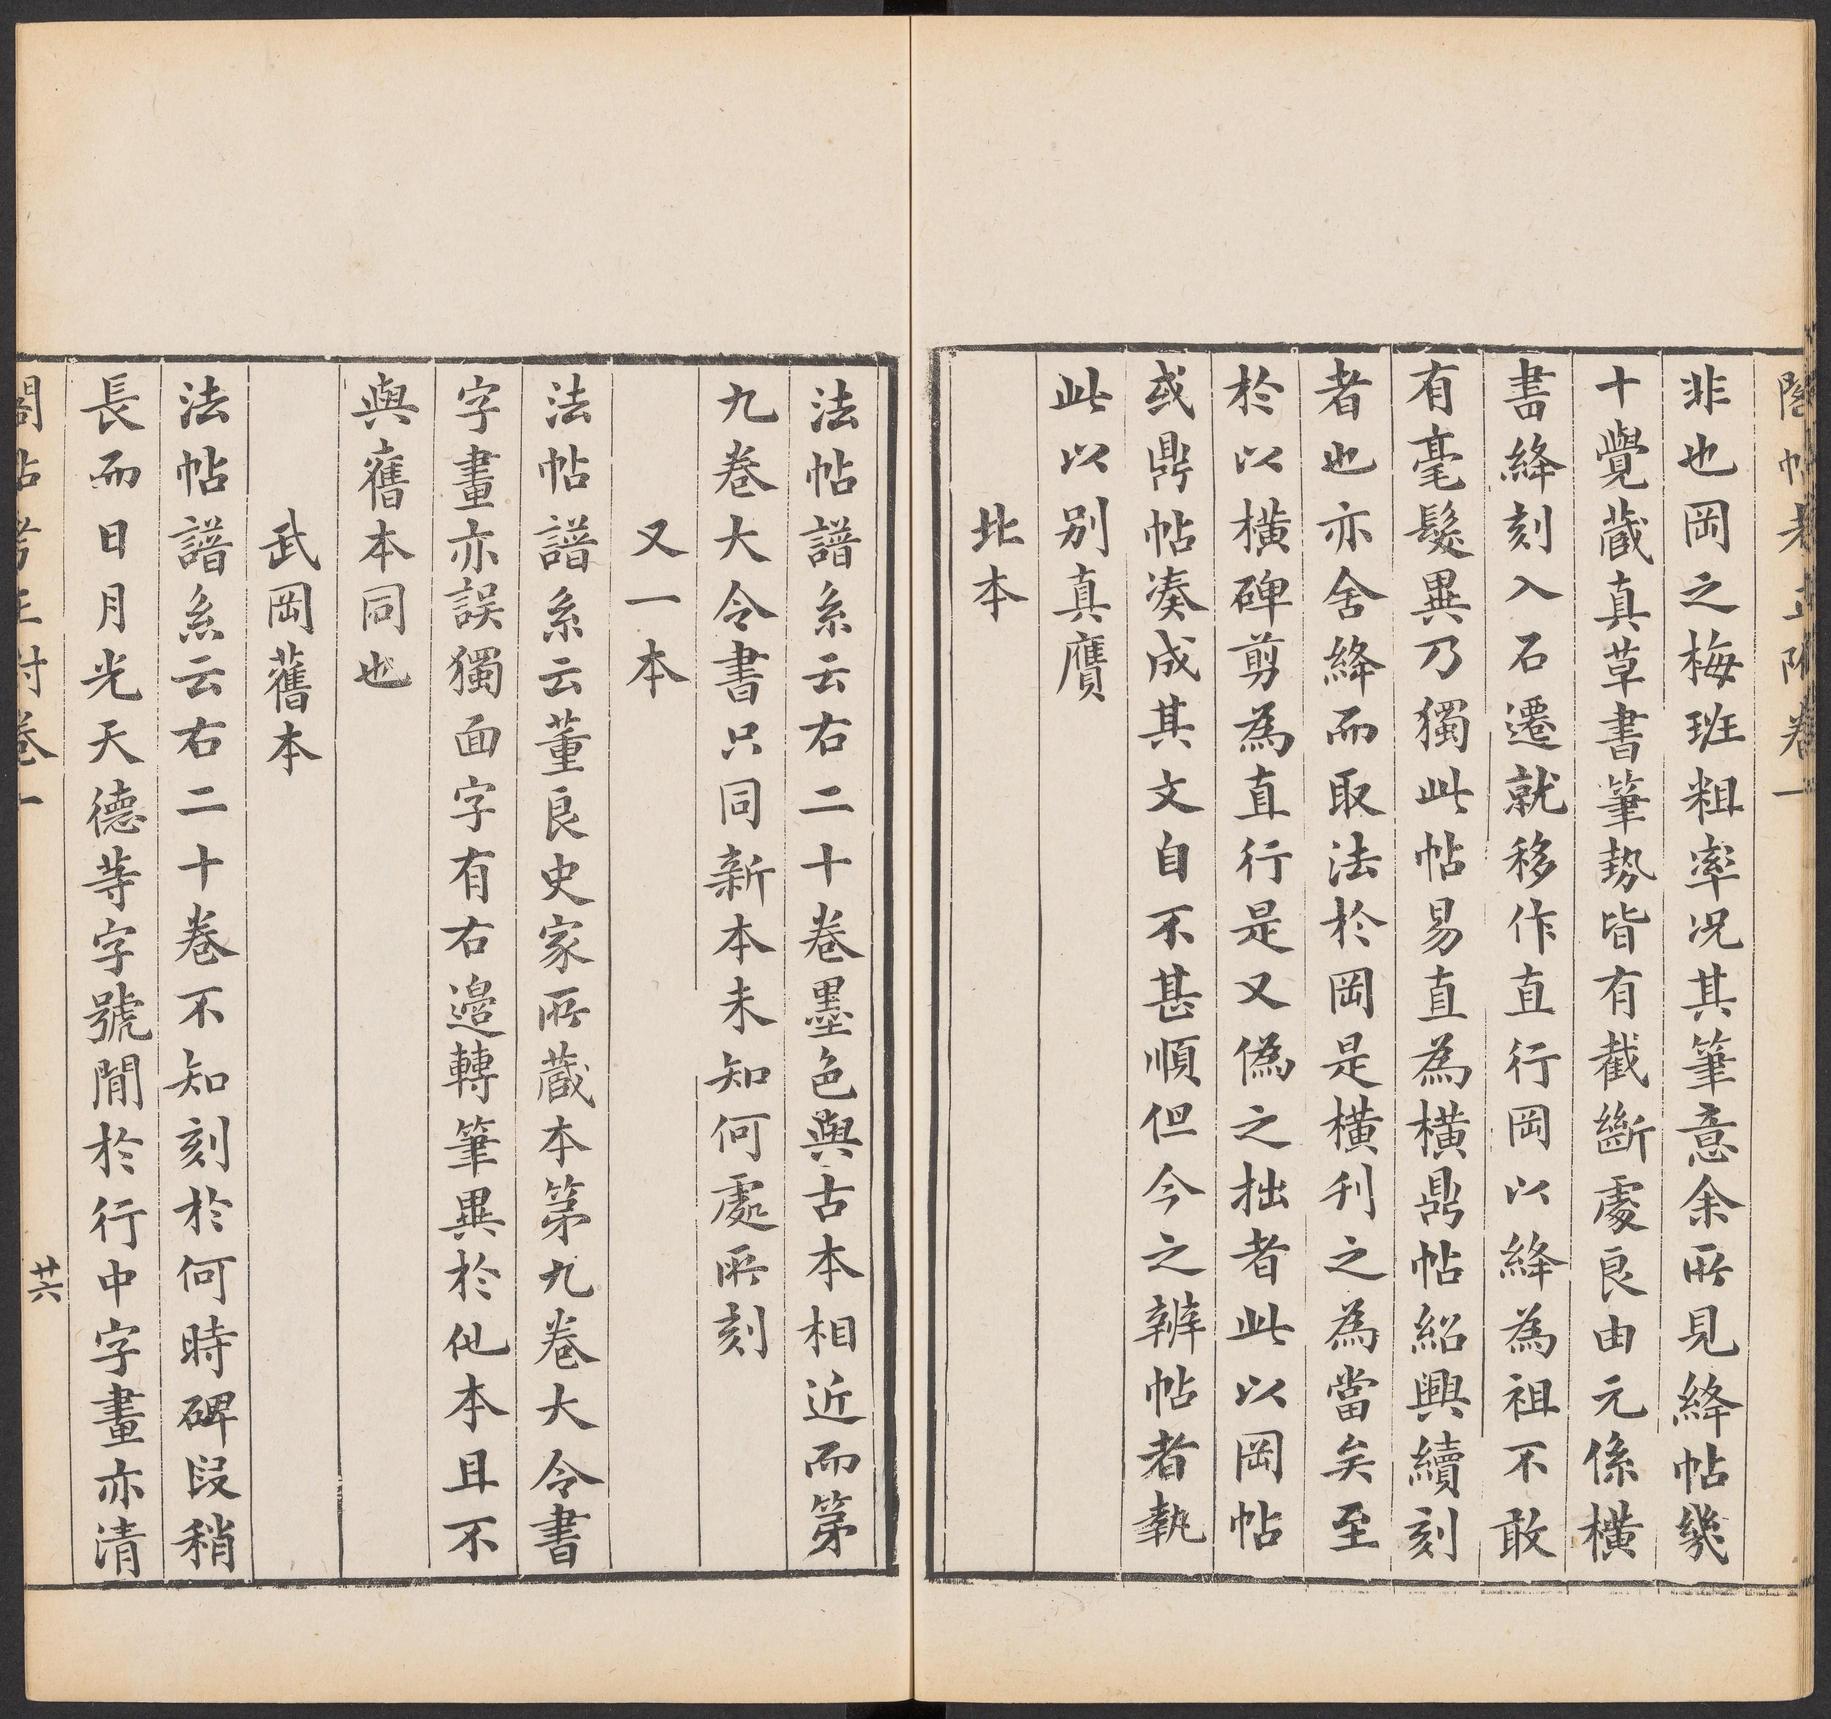 閣帖考正附卷一
非也岡之梅班粗率况其筆意余所見絳帖幾
十覺藏真草書筆勢皆有截斷處良由元係橫
書絳刻入石遷就移作直行岡以絳為祖不敢
有毫髮異乃獨此帖易直為橫鼎帖紹興續刻
者也亦舍絳而取法於岡是橫刋之為當矣至
於以橫碑剪為直行是又偽之拙者此以岡帖
或鼎帖凑成其文自不甚順但今之辨帖者執
此以别真贋
北本
法帖譜系云右二十卷墨色與古本相近而第
九卷大令書只同新本未知何處所刻
又一本
法帖譜系云董良史家所藏本第九卷大令書
字畫亦誤獨面字有右邉轉筆異於他本且不
與舊本同也
武岡舊本
法帖譜系云右二十卷不知刻於何時碑段稍
長而日月光天德等字號閒於行中字畫亦清
閣帖考正附卷一
廿六